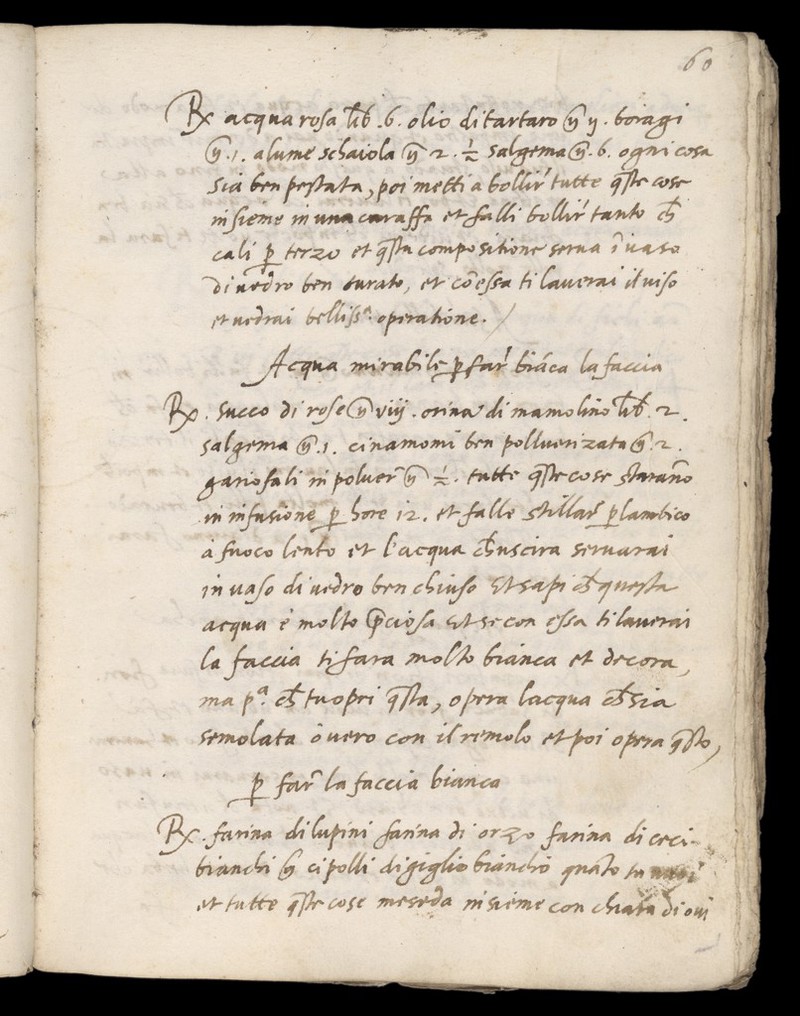 60
Rx acqua rosa lib .6. olio di tartaro ʒ ij . boragi
ʒ .1. alume schaiola ʒ 2 . ½ salgema ʒ. 6. ogni cosa
sia ben pestata, poi metti a bollir tutte q̃ste cose
insieme in una caraffa et falli bollir tanto ch̃
cali p̱ terzo et q̃sta compositione serua ĩ uaso
di uedro ben turato, et cõ essa ti lauerai il uiso
et uedrai belliss.ª operatione. /
Acqua mirabile p̱ far biãca la faccia
Rx . succo di rose ʒ viij . orina di mamolino lib. 2.
salgema ʒ .1. cinamomi ben polluerizata ʒ. 2.
gariofali in poluer̃ ʒ ½ . tutte q̃ste cose starañо
in infusione p̱ hore 12. et falle stillar̃ p̱ lambico
a fuoco lento et l'acqua ch̃ uscira seruarai
in uaso di uedro ben chiuso Et sapi ch̃ questa
acqua è molto p̃ciosa Et se con essa ti lauerai
la faccia ti fara molto bianca et decora,
ma p.ª ch̃ tu opri q̃sta, opera lacqua ch̃ sia
semolata ò uero con il remolo et poi opera q̃sto,
p̱ far̃ la faccia bianca
Rx . farina di lupini farina di orzo farina di ceci
bianchi cipolli di giglio bianchò quãto tu
et tutte q̃ste cose meseda insieme con chiara di oui